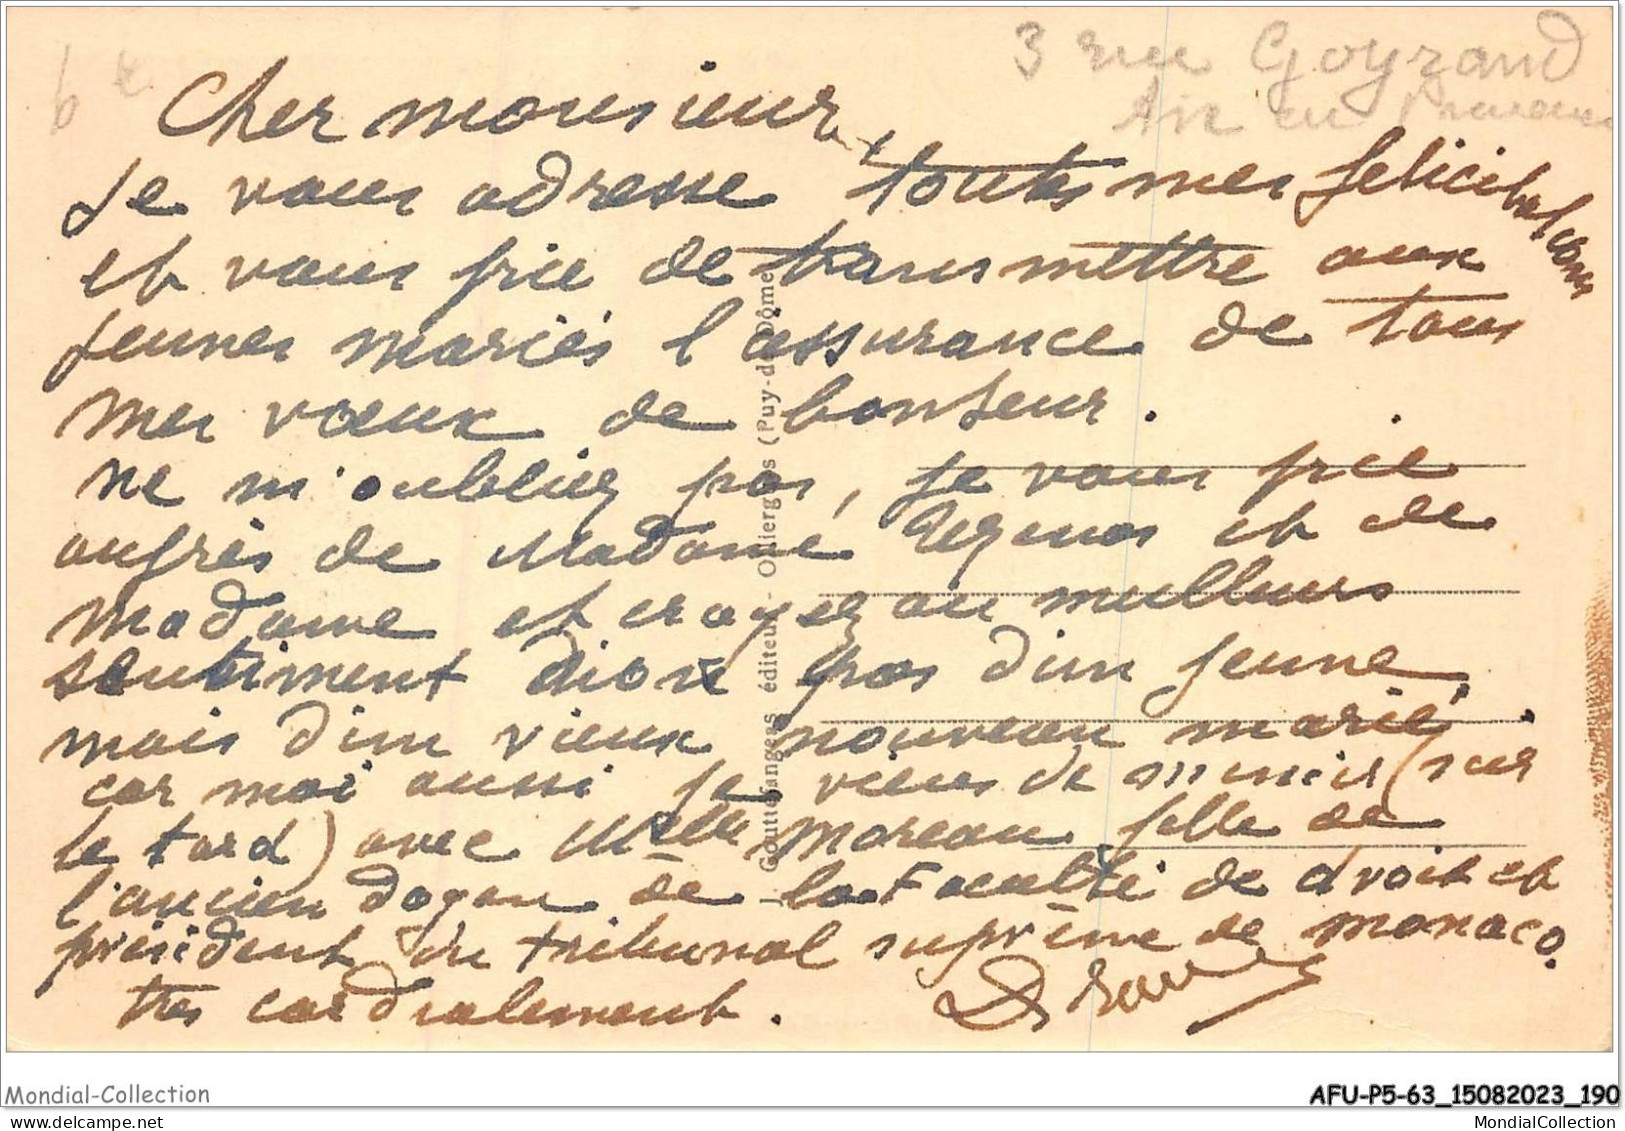 3 rue Goyrand
Aix en Provence
Cher monsieur,
Je vous adresse toutes mes félicitations
et vous prie de transmettre aux
jeunes mariés l'assurance de tous
mes vœux de bonheur.
ne m'oubliez pas, je vous prie
auprès de Madame et de
Madame et croyez au meilleurs
sentiment dirai pas d'un jeune
mais d'un vieux nouveau marié,
car moi aussi je viens de m'unir (sur
le tard) avec Melle Moreau fille de
l'ancien doyen de la Faculté de droit et
président du tribunal suprême de monaco.
très cordialement.
J. Gouttefangeas, éditeur - Olliergues (Puy-de-Dôme)
Mondial-Collection
AFU-P5-63_15082023_190
MondialCollection